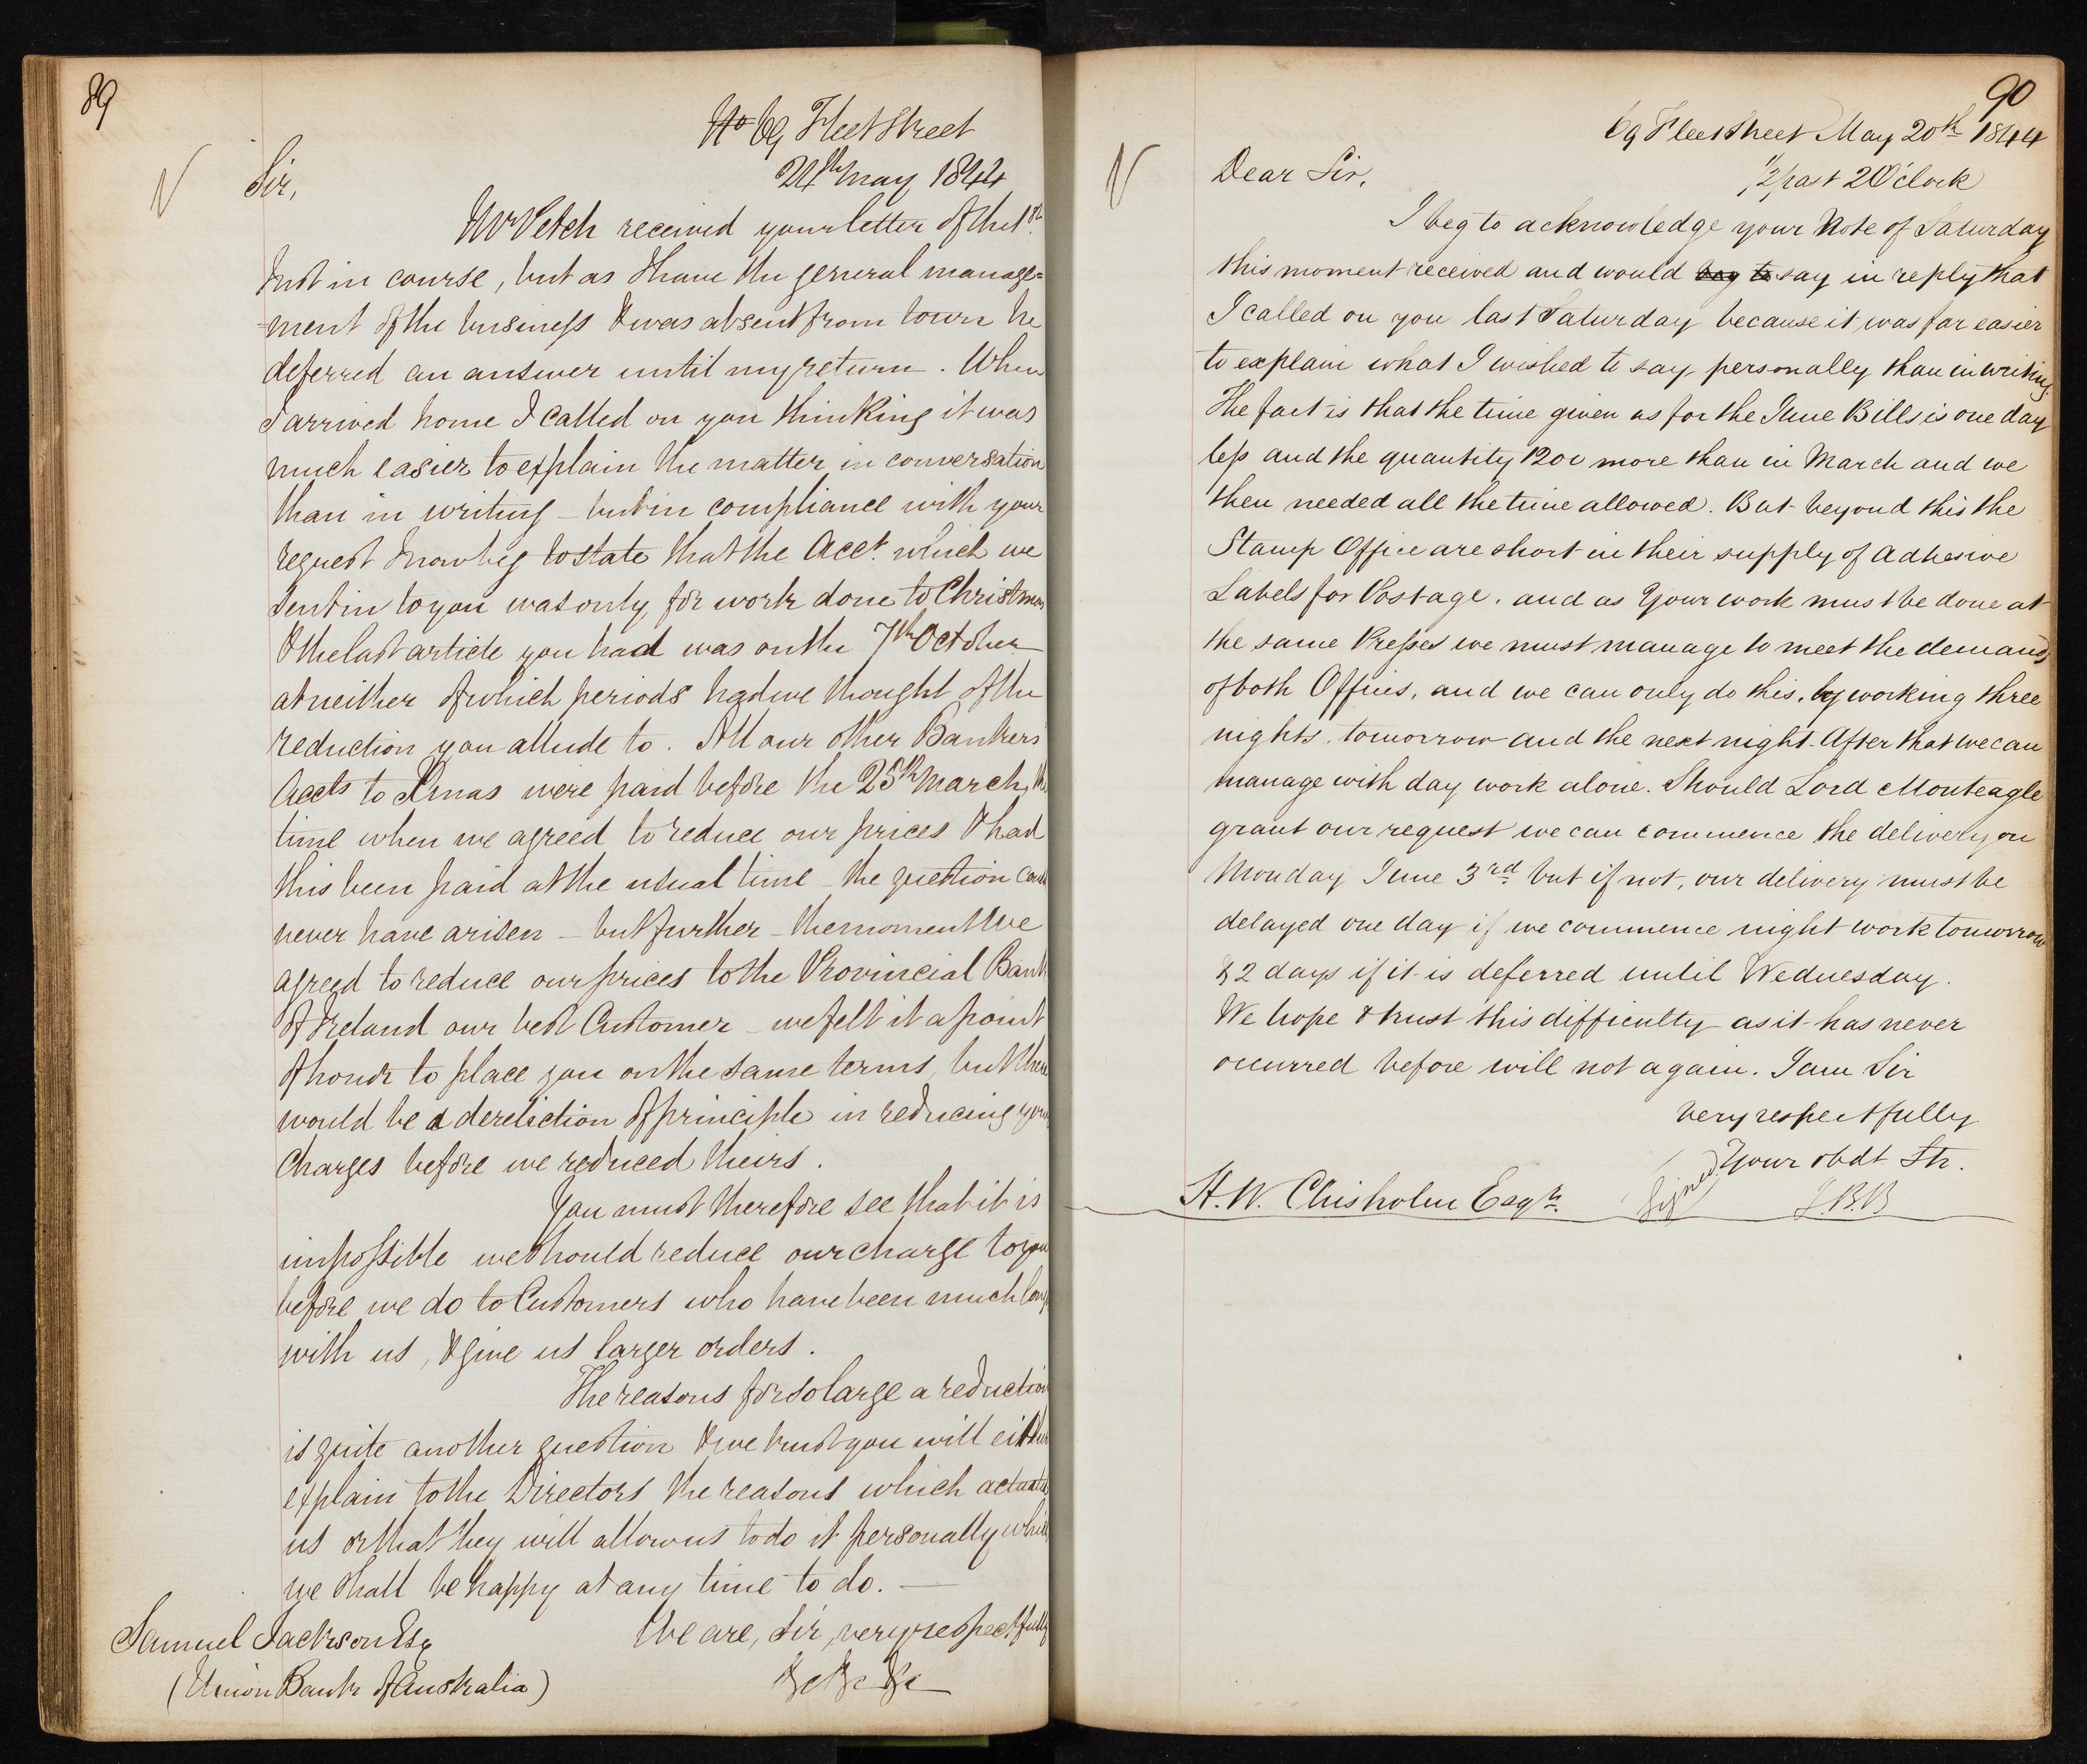 89
No 69 Fleet Street
24th May 1844
Sir,
Mr Petch received your letter of the 1st
Inst in course, but as I have the general manage=
=ment of the business & was absent from town he
deferred an answer until my return. When
I arrived home I called on you thinking it was
much easier to explain the matter in conversation
than in writing – but in compliance with your
request I now beg to state that the Acct. which we
sent in to you was only for work done to Christmas
& the last article you had was on the 7th October
at neither of which periods had we thought of the
reduction you allude to. All our other Bankers
Accts to Xmas were paid before the 25th March, the
time when we agreed to reduce our prices & had
this been paid at the usual time – the question could
never have arisen – but further – the moment we
agreed to reduce our prices to the Provincial Bank
of Ireland our best Customer – we felt it a point
of honor to place you on the same terms, but there
would be a dereliction of principle in reducing your
charges before we reduced theirs.
You must therefore see that it is
impossible we should reduce our charge to you
before we do to Customers who have been much long
with us, & give us larger orders.
The reasons for so large a reduction
is quite another question & we trust you will either
explain to the Directors the reasons which actuated
us or that they will allow us to do it personally which
we shall be happy at any time to do. —
We are, Sir, very respectfully
&c &c &c
Samuel Jackson Esq
(Union Bank of Australia)
90
69 Fleet Street May 20th 1844
1/2 past 2 O'clock
Dear Sir,
I beg to acknowledge your Note of Saturday
this moment received and would beg to say in reply that
I called on you last Saturday because it was far easier
to explain what I wished to say personally than in writing.
The fact is that the time given us for the June Bills is one day
less and the quantity 1200 more than in March and we
then needed all the time allowed. But beyond this the
Stamp Office are short in their supply of Adhesive
Labels for Postage. and as Your work must be done at
the same Presses we must manage to meet the demands
of both Offices, and we can only do this, by working three
nights. tomorrow and the next night. After that we can
manage with day work alone. Should Lord Monteagle
grant our request we can commence the delivery on
Monday June 3rd but if not, our delivery must be
delayed one day if we commence night work tomorrow
& 2 days if it is deferred until Wednesday.
We hope & trust this difficulty as it has never
occurred before will not again. I am Sir
Very respectfully
Your obdt St.
H. W. Chisholm Esqr. Signed J.B.B